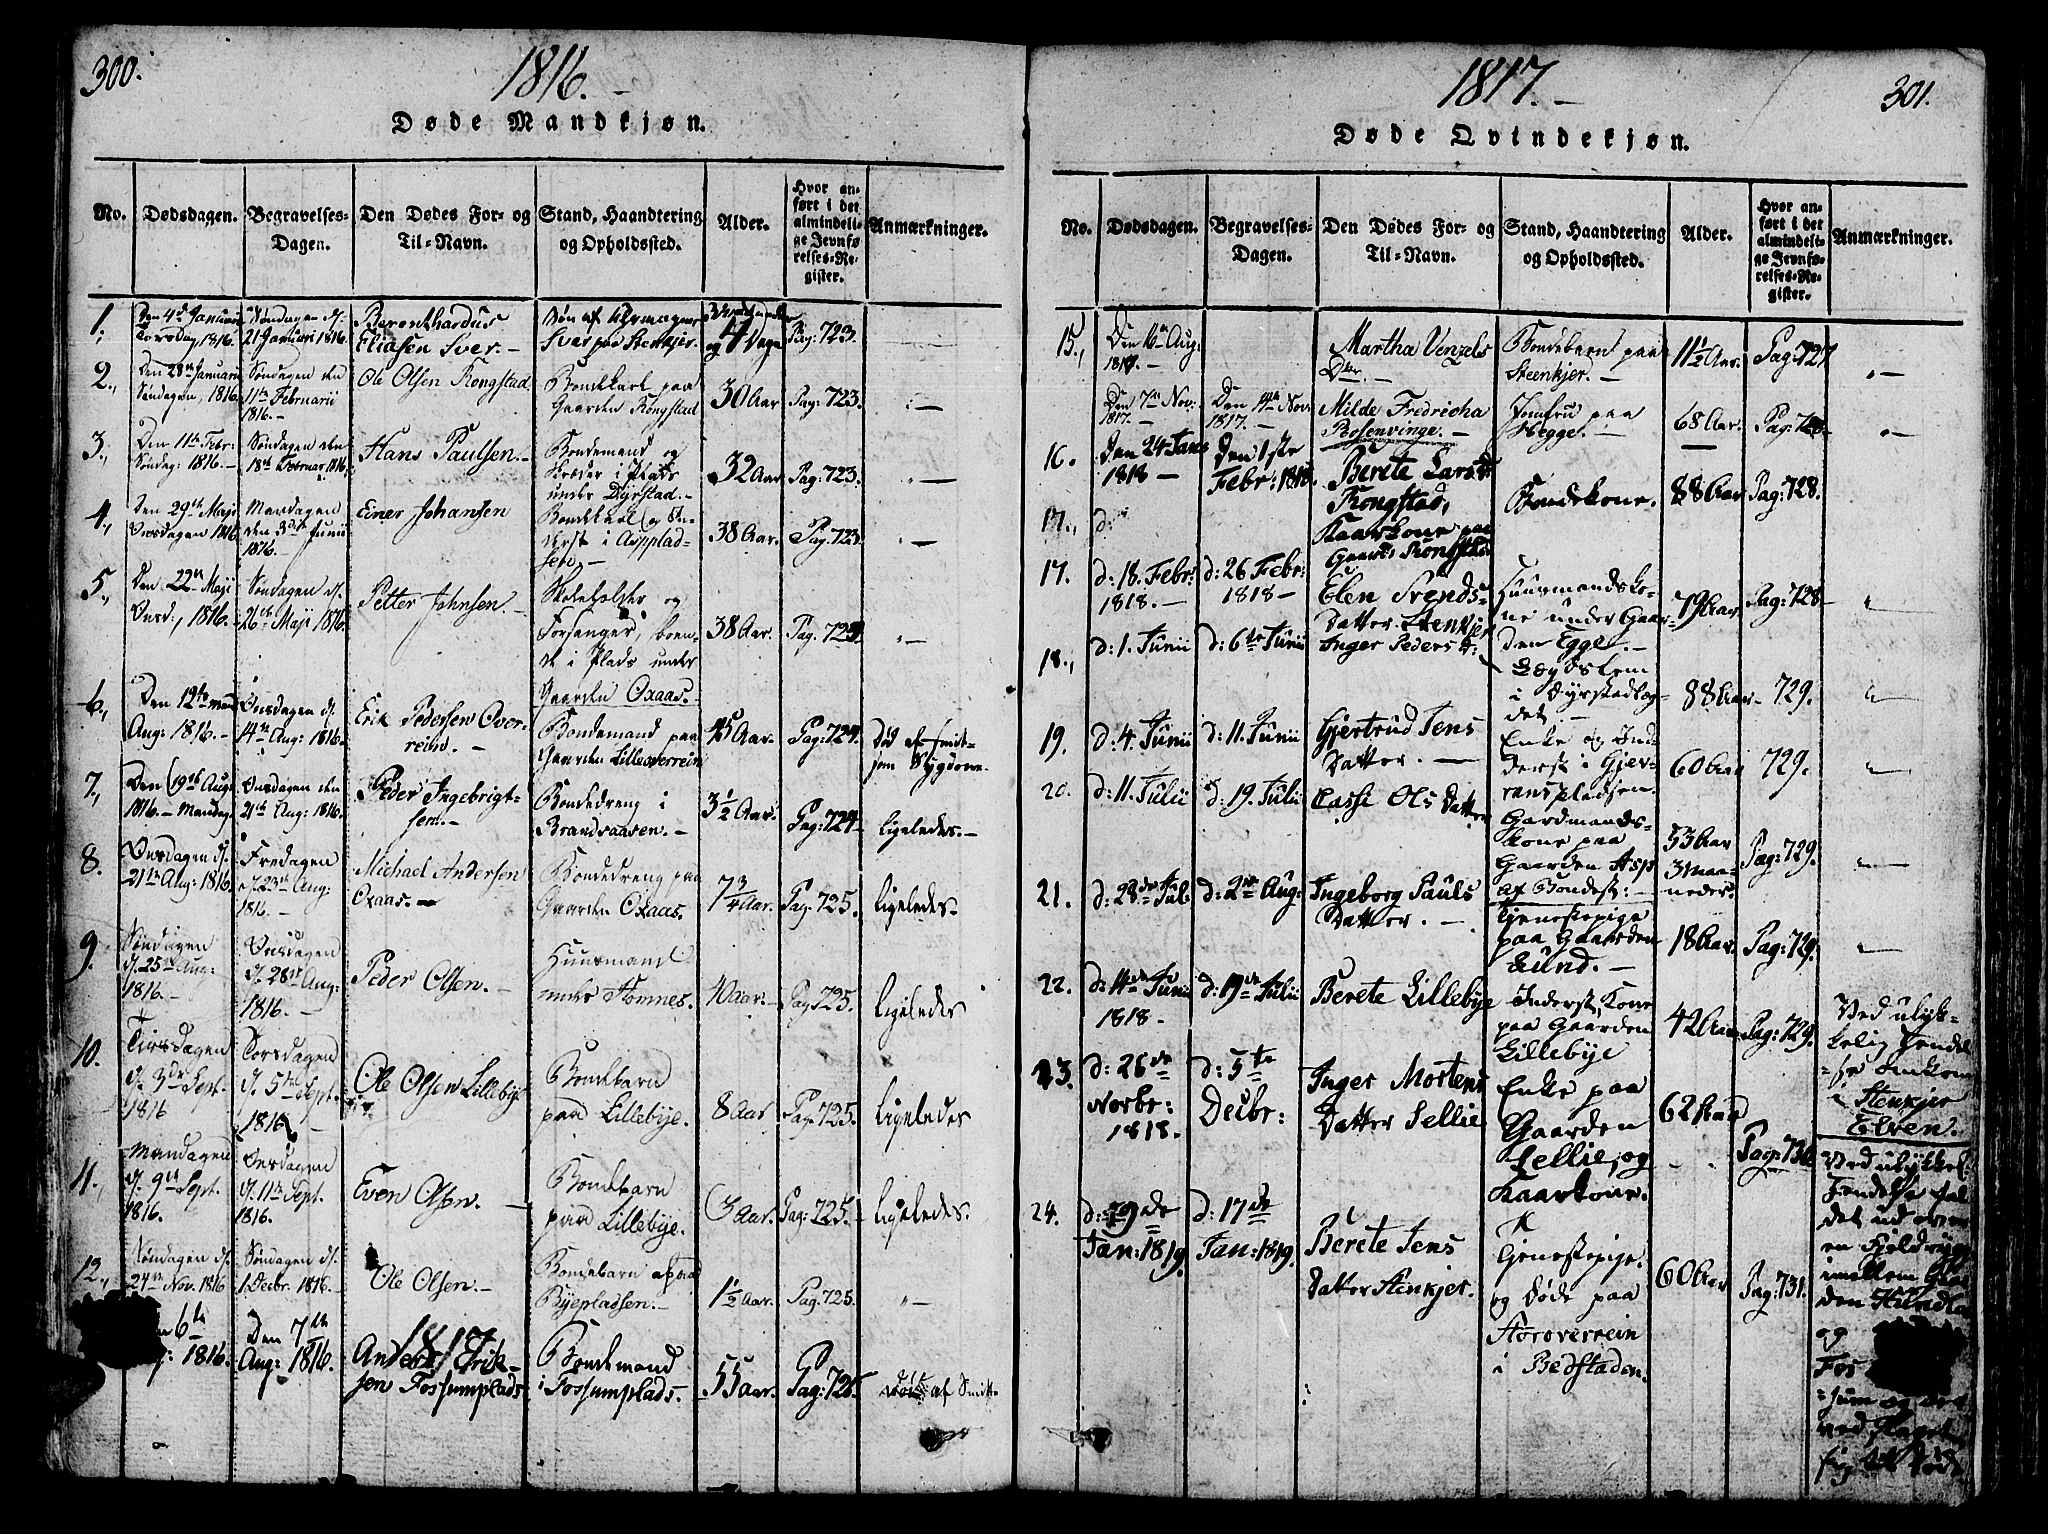 300.
1816.
Døde Mandkjøn.
No. Dødsdagen. Begravelses-Dagen. Den Dødes For- og Til-Navn. Stand, Haandtering og Opholdssted. Alder. Hvor anført i det almindelige Jevnførelses-Register. Anmærkninger.
1. Den 4de Januarii Torsdag 1816. Søndagen d. 21 Januarii 1816. Berenthardus Eliasen Sver. Søn af Sver paa Steenkjer. og 4 Dage Pag: 723.
2. Den 28de Januarii Søndagen, 1816. Søndagen den 11te Februarii 1816. Ole Olsen Kongstad Bondekarl paa Gaarden Kongstad 30 Aar Pag: 723.
3. Den 11te Febr: Søndag: 1816. Søndagen den 18de Februar 1816. Hans Paulsen. Bondemand og Skræder i Plads under Dyrstad. 32 Aar Pag: 723.
4. Den 29de Maji Onsdagen 1816 Mandagen den 3die Junii 1816. Einer Johansen Bondekarl og Inderst i 38 Aar. Pag. 723.
5. Den 22de Maji Onsd., 1816. Søndagen d. 26de Maji 1816. Petter Johnsen. Skoleholder og Forsanger, boende i Plads under Gaarden Oxaas. 38 Aar. Pag. 723.
6. Den 12te Aug: 1816. Onsdagen d. 14de Aug: 1816. Erik Pedersen Overreim. Bondemand paa Gaarden Lilleoverrein 45 Aar. Pag: 724. Død af smitsom Sygdom.
7. Den 19de Aug: 1816. Mandag. Onsdagen den 21de Aug: 1816. Peder Ingebrigtsen. Bondedreng i Brandsaasen. 3 1/2 Aar. Pag: 724 ligeledes.
8. Onsdagen d. 21de Aug: 1816. Fredagen d. 23de Aug: 1816. Michael Andersen Oxaas. Bondedreng paa Gaarden Oxaas. 7 3/4 Aar. Pag: 725. ligeledes.
9. Søndagen d. 25de Aug: 1816. Onsdagen d. 28de Aug: 1816. Peder Olsen. Huusmand under Homnes. 40 Aar. Pag 725. ligeledes
10. Tirsdagen d. 3die Sept. 1816 Torsdagen d. 5te Sept. 1816. Ole Olsen Lillebye Bondebarn paa Lillebye. 8 Aar Pag. 725. ligeledes
11. Mandagen d. 9de Sept. 1816. Onsdagen d. 11te Sept. 1816. Even Olsen. Bondebarn paa Lillebye. 3 Aar. Pag: 725. ligeledes.
12. Søndagen d. 24de Nov. 1816 Søndagen d. 1 Decbr. 1816. Ole Olsen. Bondebarn Byepladsen. 1 1/2 Aar. Pag: 725.
1817
6te 1816. Den 7de Aug: 1816. Anders Eriksen Fossumplads Bondemand i Fossumplads. 55 Aar. Pag: 726. af Smitte
301.
1817.
Døde Qvindekjøn.
No. Dødsdagen. Begravelses-Dagen. Den Dødes For- og Til-Navn. Stand, Haandtering og Opholdssted. Alder. Hvor anført i det almindelige Jevnførelses-Register. Anmærkninger.
15. Den 16de Aug: 1817. Martha Venzels Dtr. Bondebarn paa Steenkjer. 11 1/2 Aar. Pag: 727
Den 7de Nov: 1817. Den 14de Nov. 1817. Milde Fredricha Rosenvinge. Jomfru paa Hegge. 68 Aar. Pag: 728
16. Den 24 Jan: 1818 Den 1ste Febr: 1818. Berete Larsd: Kongstad, Kaarkone paa Gaard: Kongstad Bondekone. 88 Aar Pag: 728.
17. d:
17. d: 18. Febr: 1818. d: 26 Febr: 1818 Elen Svends Datter Stenkjer Huusmandskone under Gaarden Egge. 79 Aar. Pag: 728
18. d: 1. Junii d: 6te Junii Inger Peders D: Lægdslem i Dyrstadlægdet. 88 Aar 729.
19. d: 4. Junii d: 11. Junii Gjertrud Jens Datter. Enke og Inderst i Gjerranspladsen. 60 Aar 729.
20. d: 11. Julii d: 19. Julii Lasse Ols Datter Gardmandskone paa Gaarden Asp af Bondest: 53 Aar 3 Maaneder. Pag: 729.
21. d: 28de Jul: d: 2den Aug: Ingeborg Pauls Datter. Tjenestepige paa Gaarden Lund. 18 Aar. Pag: 729.
22. d: 14de Junii 1818. d: 19de Julii Berete Lillebye Inderst Kone paa Gaarden Lillebye 42 Aar Pag: 729. Ved ulykkelig Hendelse omkom i Stenkjer Elven.
23. d: 26de Novbr: 1818. d: 5te Decbr: Inger Mortens Datter Sellie Enke paa Gaarden Sellie, og Kaarkone. 62 Aar Pag: 730
24. d: 29de Jan: 1819. d: 17de Jan: 1819. Berete Jens Datter Stenkjer. Tjenestepige. og døde paa Storoverrein i Bedstaden. 60 Aar Pag: 731. Ved ulykkel: Hendelse faldet ud over en Fjeldryg imellem Gaarden og Fossum og død ved